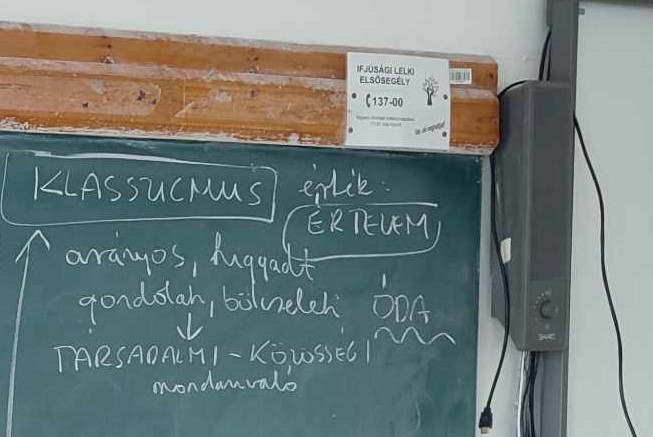 IFJÚSÁGI LELKI
ELSŐSEGÉLY
137-00
KLASSZICMUS érték:
ÉRTELEM
arányos, higgadt
gondolati, bölcseleti ÓDA
TÁRSADALMI - KÖZÖSSÉGI
mondanivaló
SMART